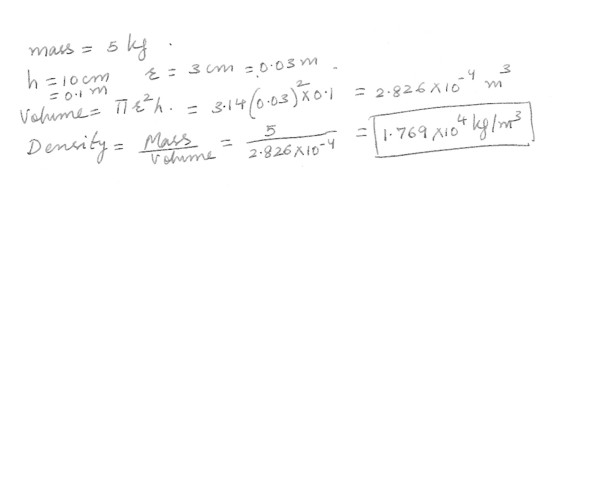 mass = 5 kg.
h = 10cm r = 3 cm = 0.03 m.
= 0.1 m
Volume = πr²h. = 3.14(0.03)² × 0.1 = 2.826 × 10⁻⁴ m³
Density = Mass/Volume = 5/2.826 × 10⁻⁴ = 1.769 × 10⁴ kg/m³